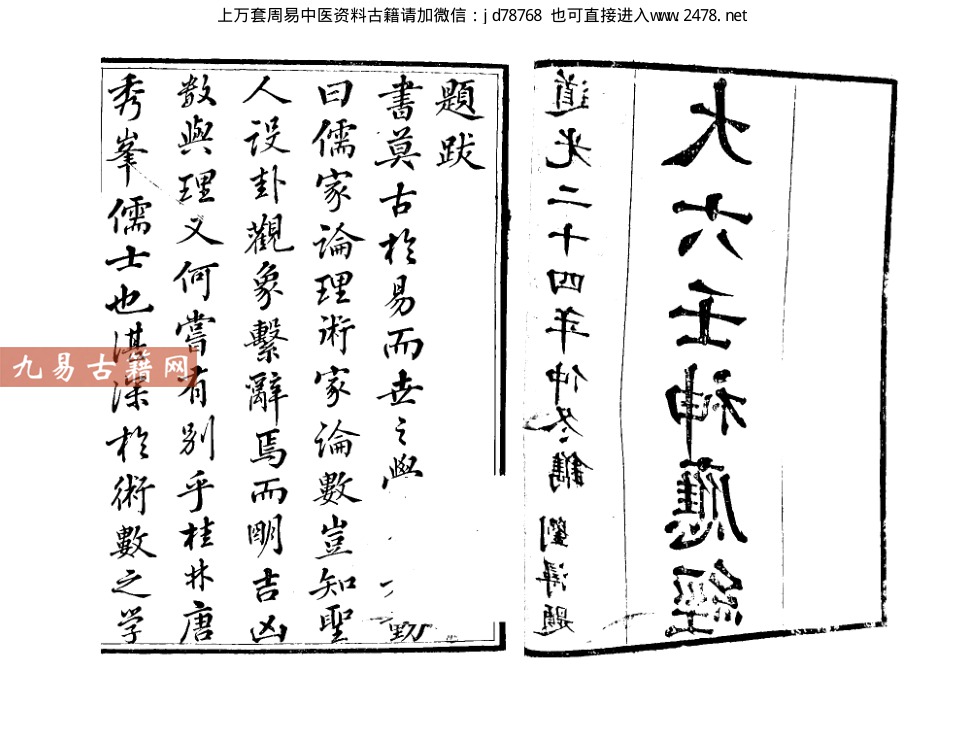 上万套周易中医资料古籍请加微信：jd78768 也可直接进入www.2478.net
大六壬神應經
道光二十四年仲冬鐫 劉 題
題跋
書莫古於易而世之學 動
曰儒家論理術家論數豈知聖
人設卦觀象繫辭焉而明吉凶
數與理又何嘗有別乎桂林唐
秀峯儒士也湛深於術數之学
九易古籍网